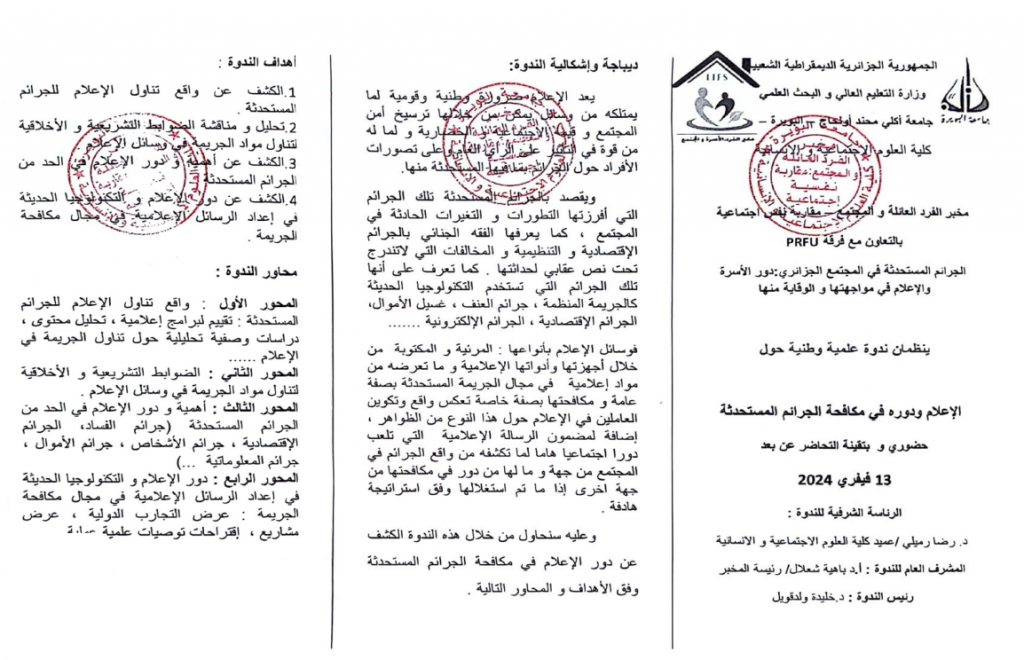 الجمهورية الجزائرية الديمقراطية الشعبية
وزارة التعليم العالي و البحث العلمي
جامعة أكلي محند أولحاج – البويرة –
كلية العلوم الاجتماعية و الإنسانية
LIFS
جامعة البويرة
مخبر الفرد العائلة و المجتمع – مقاربة نفس اجتماعية
بالتعاون مع فرقة PRFU
الجرائم المستحدثة في المجتمع الجزائري:دور الأسرة
والإعلام في مواجهتها و الوقاية منها
ينظمان ندوة علمية وطنية حول
الإعلام ودوره في مكافحة الجرائم المستحدثة
حضوري و بتقينة التحاضر عن بعد
13 فيفري 2024
الرئاسة الشرفية للندوة :
د. رضا رميلي /عميد كلية العلوم الاجتماعية و الانسانية
المشرف العام للندوة : أ.د باهية شعلال/ رئيسة المخبر
رئيس الندوة : د.خليدة ولدقويل
ديباجة وإشكالية الندوة:
يعد الإعلام ضرورة وطنية وقومية لما
يمتلكه من وسائل يمكن من خلالها ترسيخ أمن
المجتمع و قيمه الاجتماعية و الحضارية و لما له
من قوة في التأثير على الرأي العام و على تصورات
الأفراد حول الجرائم بما فيها المستحدثة منها.
ويقصد بالجرائم المستحدثة تلك الجرائم
التي أفرزتها التطورات و التغيرات الحادثة في
المجتمع ، كما يعرفها الفقه الجنائي بالجرائم
الإقتصادية و التنظيمية و المخالفات التي لاتندرج
تحت نص عقابي لحداثتها . كما تعرف على أنها
تلك الجرائم التي تستخدم التكنولوجيا الحديثة
كالجريمة المنظمة ، جرائم العنف ، غسيل الأموال،
الجرائم الإقتصادية ، الجرائم الإلكترونية .......
فوسائل الإعلام بأنواعها : المرئية و المكتوبة من
خلال أجهزتها وأدواتها الإعلامية و ما تعرضه من
مواد إعلامية في مجال الجريمة المستحدثة بصفة
عامة و مكافحتها بصفة خاصة تعكس واقع وتكوين
العاملين في الإعلام حول هذا النوع من الظواهر ،
إضافة لمضمون الرسالة الإعلامية التي تلعب
دورا اجتماعيا هاما لما تكشفه من واقع الجرائم في
المجتمع من جهة و ما لها من دور في مكافحتها من
جهة اخرى إذا ما تم استغلالها وفق استراتيجة
هادفة .
وعليه سنحاول من خلال هذه الندوة الكشف
عن دور الإعلام في مكافحة الجرائم المستحدثة
وفق الأهداف و المحاور التالية .
أهداف الندوة :
1.الكشف عن واقع تناول الإعلام للجرائم
المستحدثة .
2.تحليل و مناقشة الضوابط التشريعية و الأخلاقية
لتناول مواد الجريمة في وسائل الإعلام
3.الكشف عن أهمية و دور الإعلام في الحد من
الجرائم المستحدثة
4.الكشف عن دور الإعلام و التكنولوجيا الحديثة
في إعداد الرسائل الإعلامية في مجال مكافحة
الجريمة .
محاور الندوة :
المحور الأول : واقع تناول الإعلام للجرائم
المستحدثة : تقييم لبرامج إعلامية ، تحليل محتوى ،
دراسات وصفية تحليلية حول تناول الجريمة في
الإعلام ......
المحور الثاني : الضوابط التشريعية و الأخلاقية
لتناول مواد الجريمة في وسائل الإعلام .
المحور الثالث : أهمية و دور الإعلام في الحد من
الجرائم المستحدثة (جرائم الفساد، الجرائم
الإقتصادية ، جرائم الأشخاص ، جرائم الأموال ،
جرائم المعلوماتية ...)
المحور الرابع : دور الإعلام و التكنولوجيا الحديثة
في إعداد الرسائل الإعلامية في مجال مكافحة
الجريمة : عرض التجارب الدولية ، عرض
مشاريع ، إقتراحات توصيات علمية